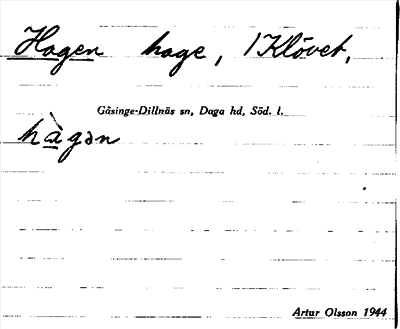 Hagen hage, 1 Klövet,
Gåsinge-Dillnäs sn, Daga hd, Söd. l.
hàgən
Artur Olsson 1944